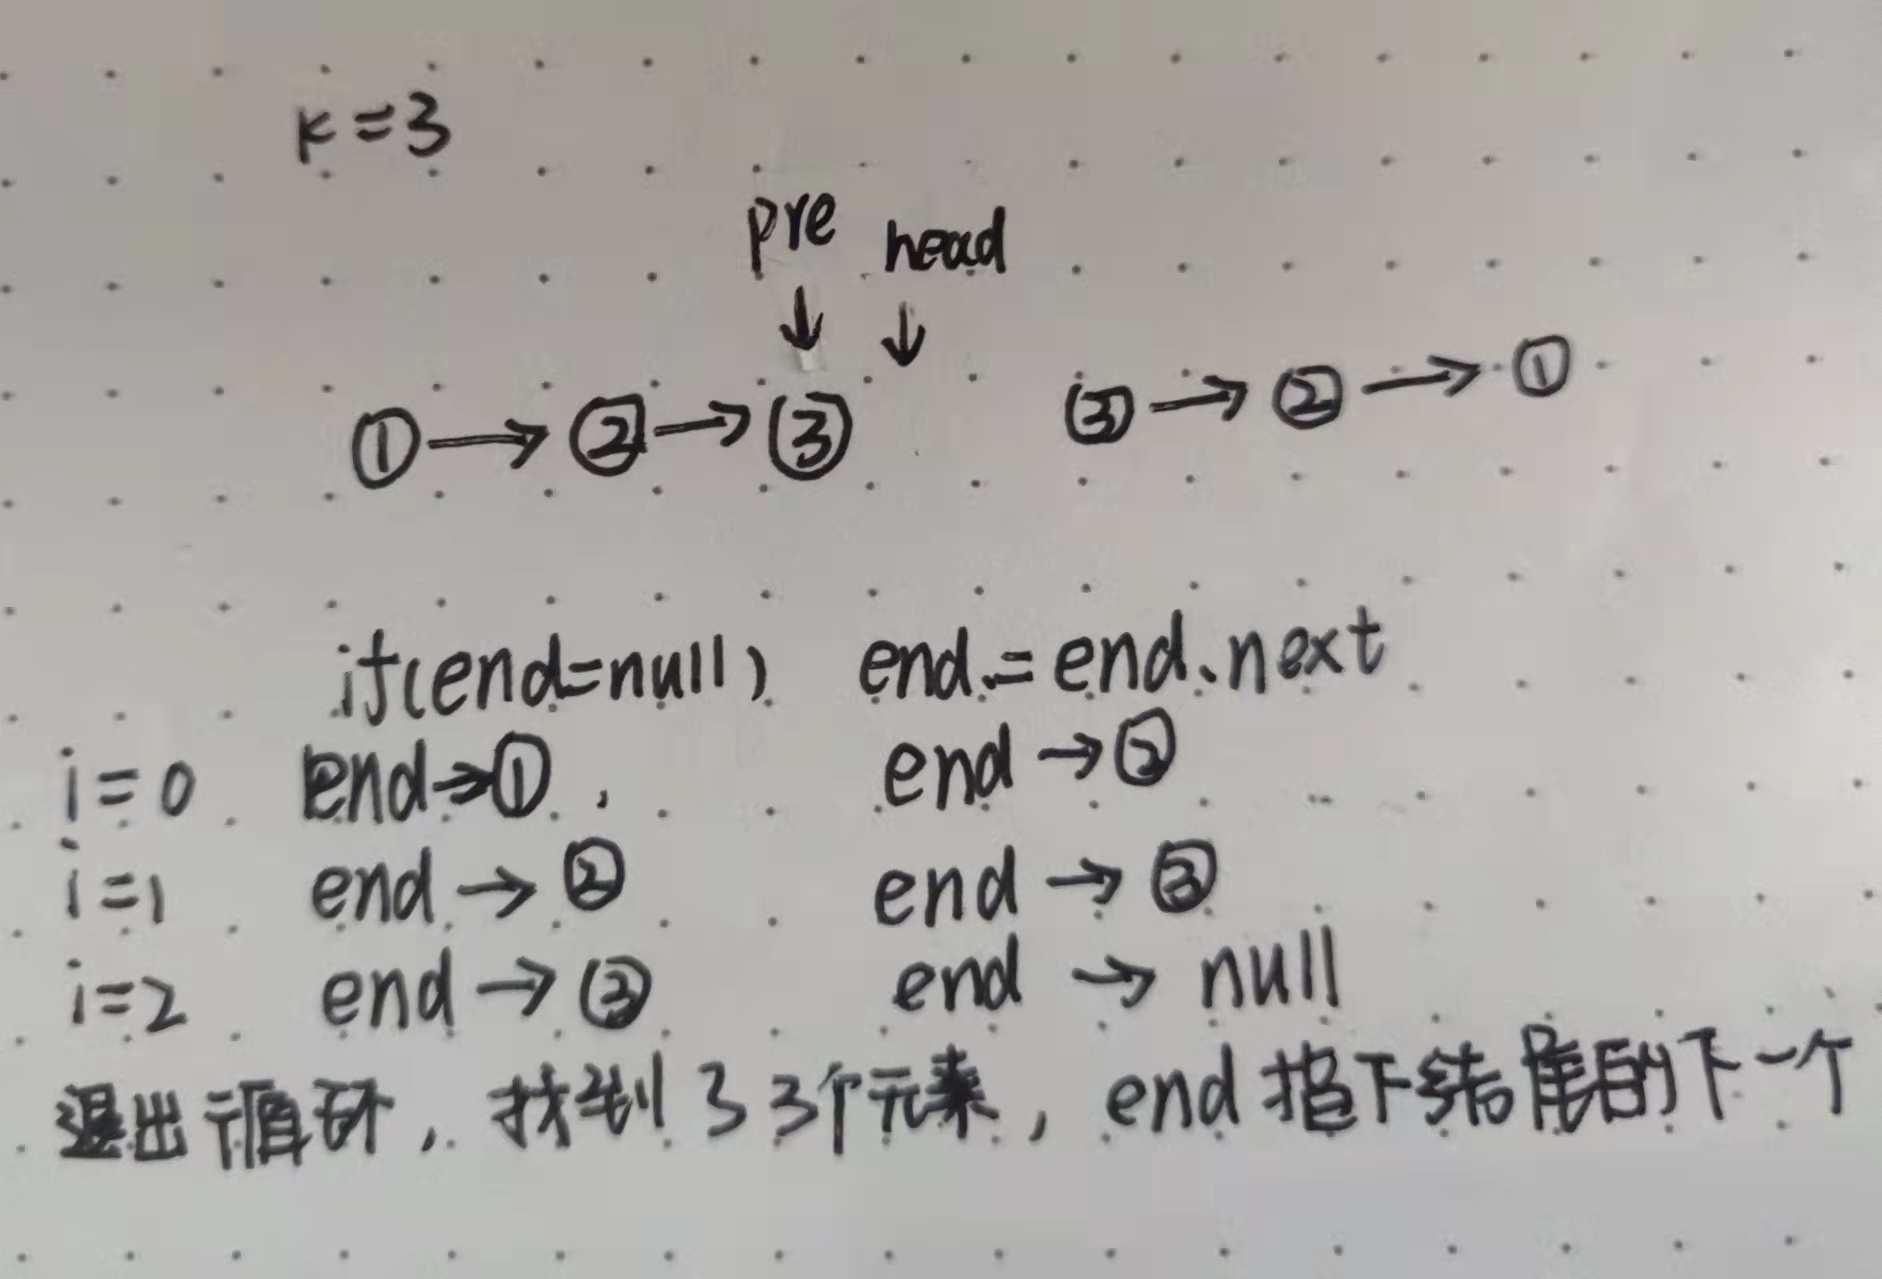 k=3
pre head
①→②→③ ③→②→①
if(end=null) end=end.next
i=0 end→① end→②
i=1 end→② end→③
i=2 end→③ end→null
退出循环,找到了3个元素,end指下结尾的下一个